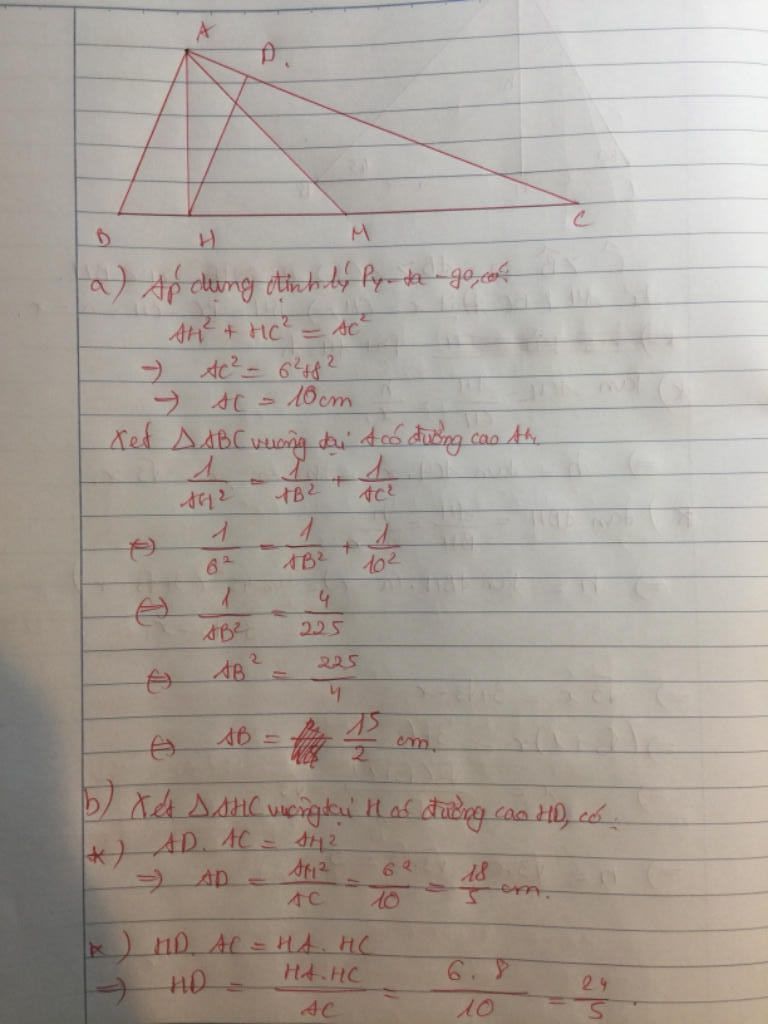 A
D.
B
H
M
C
a) Áp dụng định lý Py-ta-go, có:
AH² + HC² = AC²
→ AC² = 6²+8²
→ AC = 10cm
Xét △ABC vuông tại A có đường cao AH.
1/AH² = 1/AB² + 1/AC²
⇔ 1/6² = 1/AB² + 1/10²
⇔ 1/AB² = 4/225
⇔ AB² = 225/4
⇔ AB = 15/2 cm.
b) Xét △AHC vuông tại H có đường cao HD, có:
*) AD. AC = AH²
⇒ AD = AH²/AC = 6²/10 = 18/5 cm.
*) HD. AC = HA. HC
⇒ HD = HA.HC/AC = 6.8/10 = 24/5.